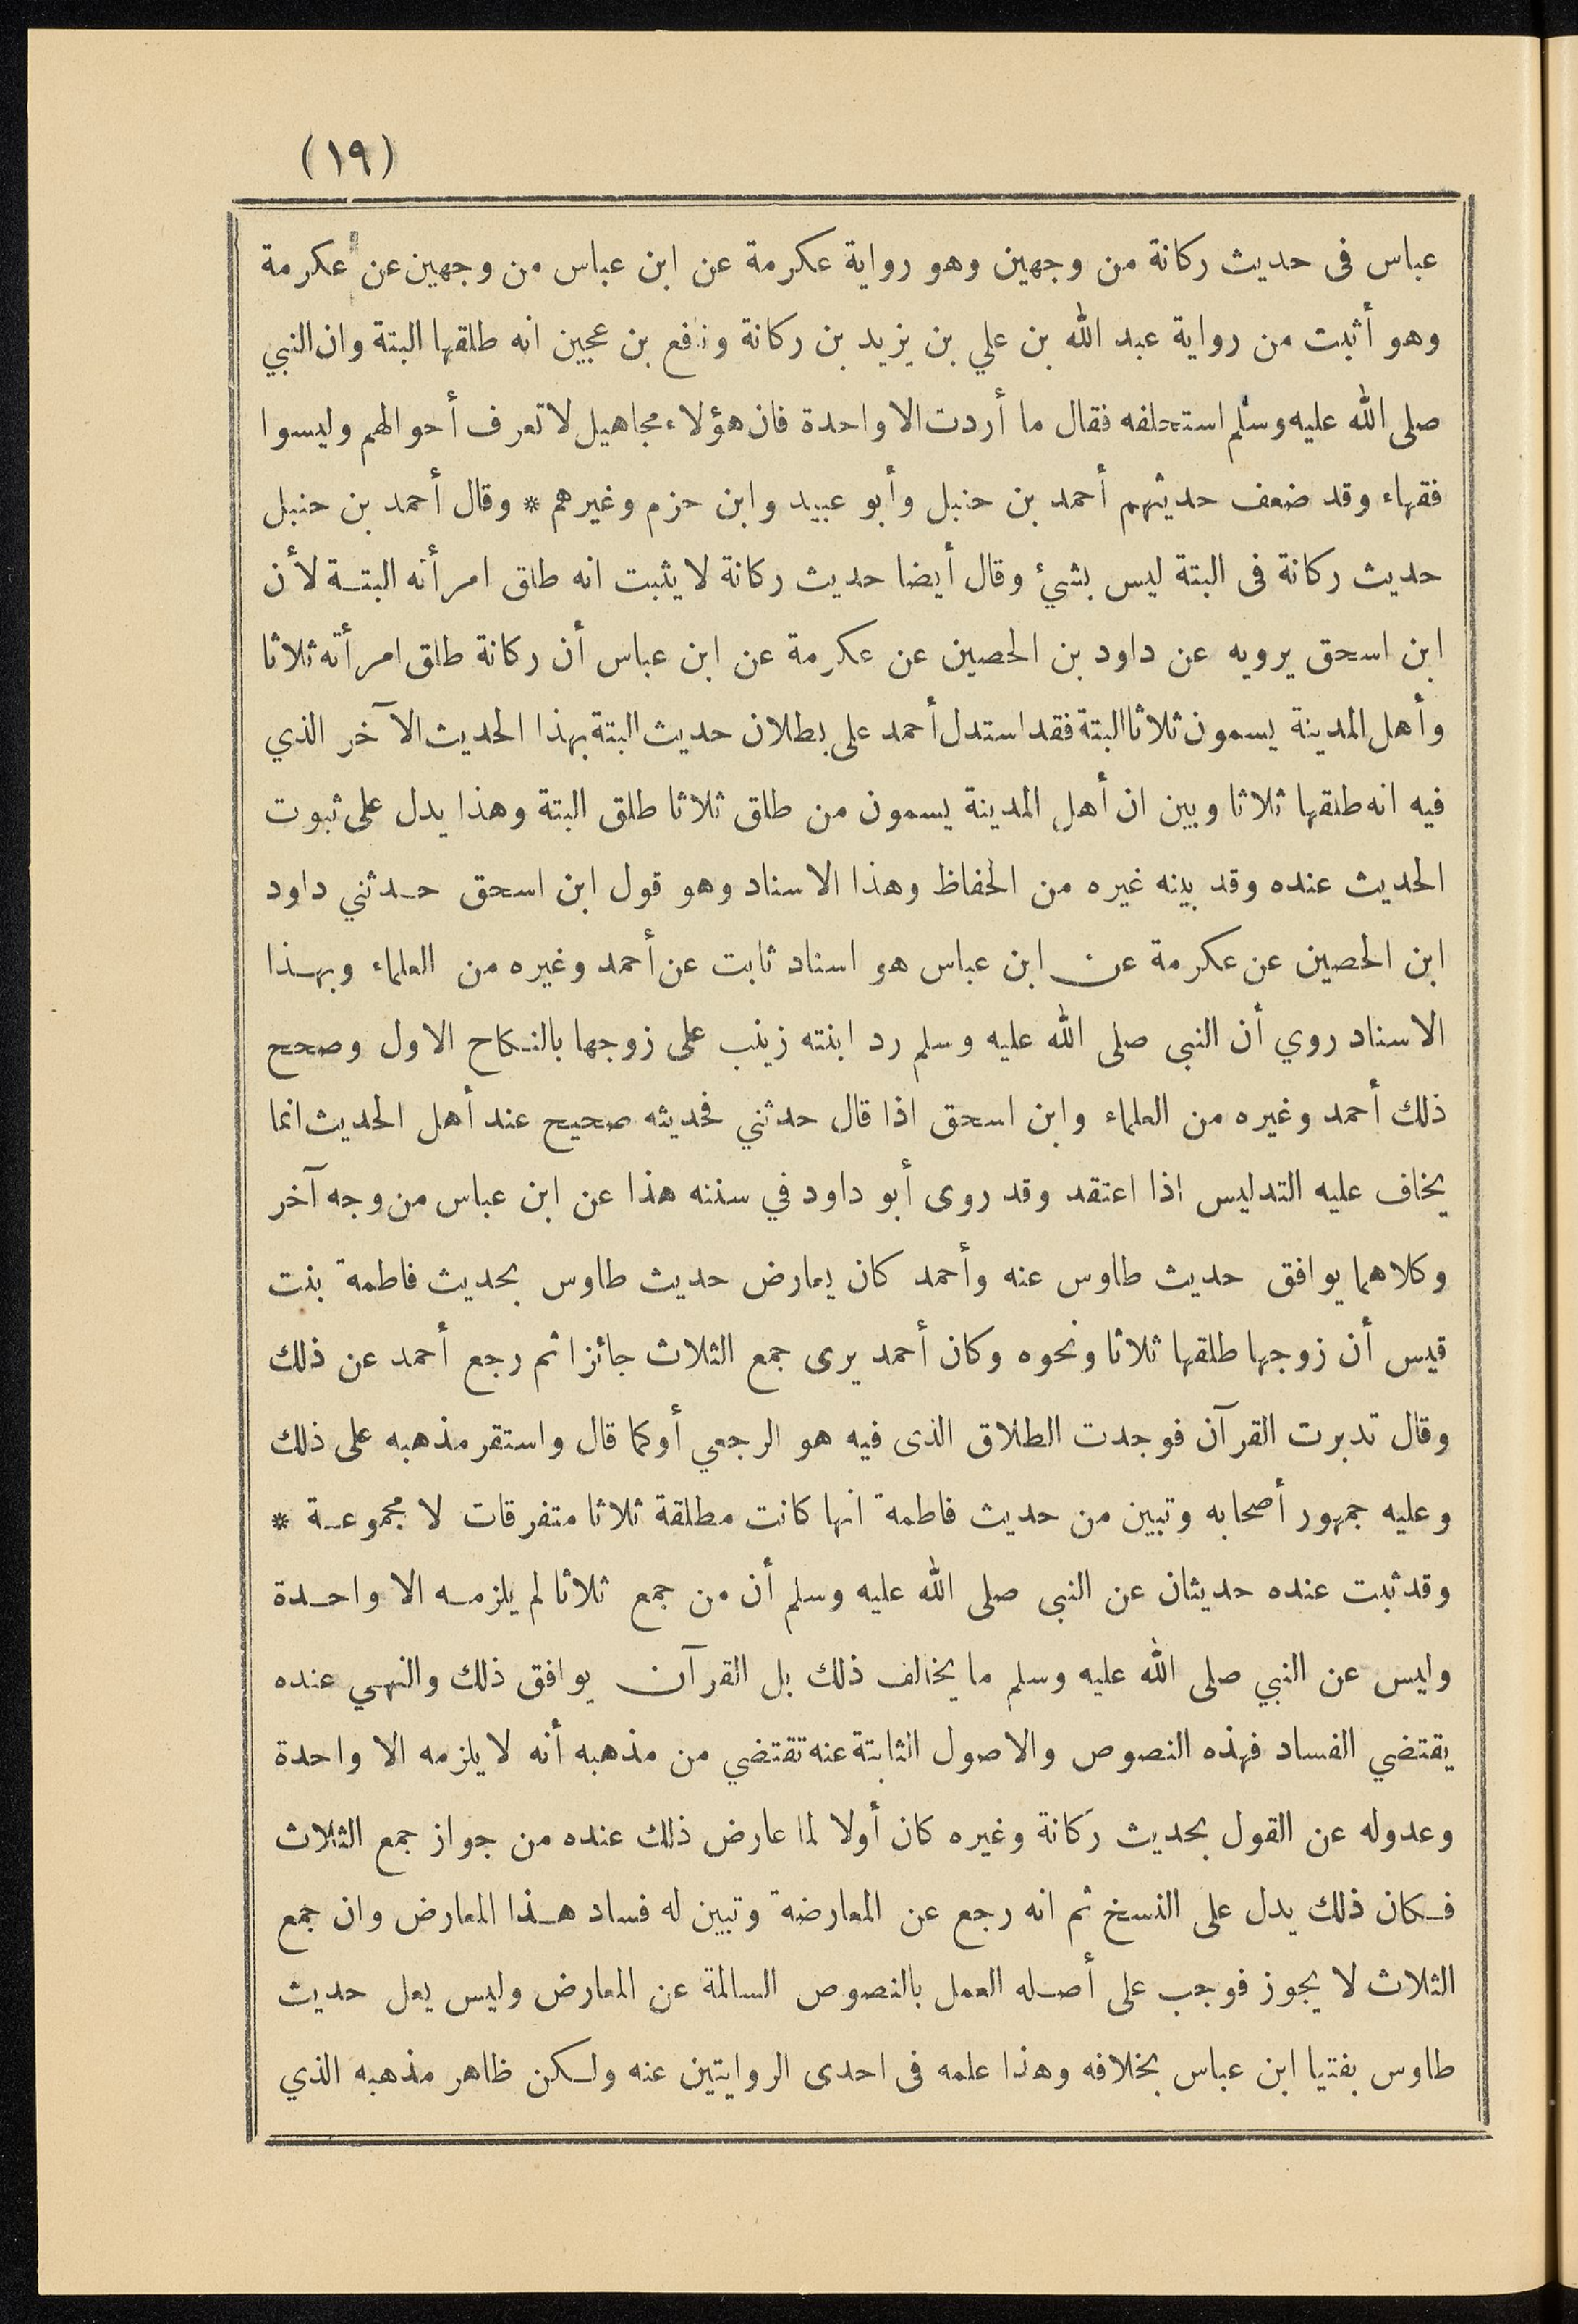 (١٩)
عباس فى حديث ركانة من وجهين وهو رواية عكرمة عن ابن عباس من وجهين عن عكرمة
وهو أثبت من رواية عبد الله بن علي بن يزيد بن ركانة ونافع بن عجين انه طلقها البتة وان النبي
صلى الله عليه وسلم استحلفه فقال ما أردت الا واحدة فان هؤلاء مجاهيل لا تعرف أحوالهم وليسوا
فقهاء وقد ضعف حديثهم أحمد بن حنبل وأبو عبيد وابن حزم وغيرهم * وقال أحمد بن حنبل
حديث ركانة فى البتة ليس بشئ وقال أيضا حديث ركانة لا يثبت انه طلق امرأته البتــة لأن
ابن اسحق يرويه عن داود بن الحصين عن عكرمة عن ابن عباس أن ركانة طلق امرأته ثلاثا
وأهل المدينة يسمون ثلاثا البتة فقد استدل أحمد على بطلان حديث البتة بهذا الحديث الآخر الذي
فيه انه طلقها ثلاثا وبين ان أهل المدينة يسمون من طلق ثلاثا طلق البتة وهذا يدل على ثبوت
الحديث عنده وقد بينه غيره من الحفاظ وهذا الاسناد وهو قول ابن اسحق حــدثني داود
ابن الحصين عن عكرمة عن ابن عباس هو اسناد ثابت عن أحمد وغيره من العلماء وبهــذا
الاسناد روي أن النبى صلى الله عليه وسلم رد ابنته زينب على زوجها بالنــكاح الاول وصحح
ذلك أحمد وغيره من العلماء وابن اسحق اذا قال حدثني فحديثه صحيح عند أهل الحديث انما
يخاف عليه التدليس اذا اعتقد وقد روى أبو داود في سننه هذا عن ابن عباس من وجه آخر
وكلاهما يوافق حديث طاوس عنه وأحمد كان يعارض حديث طاوس بحديث فاطمة بنت
قيس أن زوجها طلقها ثلاثا ونحوه وكان أحمد يرى جمع الثلاث جائزا ثم رجع أحمد عن ذلك
وقال تدبرت القرآن فوجدت الطلاق الذى فيه هو الرجعي أوكما قال واستقر مذهبه على ذلك
وعليه جمهور أصحابه وتبين من حديث فاطمة انها كانت مطلقة ثلاثا متفرقات لا مجموعــة *
وقد ثبت عنده حديثان عن النبى صلى الله عليه وسلم أن من جمع ثلاثا لم يلزمــه الا واحــدة
وليس عن النبي صلى الله عليه وسلم ما يخالف ذلك بل القرآن يوافق ذلك والنهي عنده
يقتضي الفساد فهذه النصوص والاصول الثابتة عنه تقتضي من مذهبه أنه لا يلزمه الا واحدة
وعدوله عن القول بحديث ركانة وغيره كان أولا لما عارض ذلك عنده من جواز جمع الثلاث
فــكان ذلك يدل على النسخ ثم انه رجع عن المعارضة وتبين له فساد هــذا المعارض وان جمع
الثلاث لا يجوز فوجب على أصــله العمل بالنصوص السالمة عن المعارض وليس يعل حديث
طاوس بفتيا ابن عباس بخلافه وهذا علمه فى احدى الروايتين عنه ولــكن ظاهر مذهبه الذي